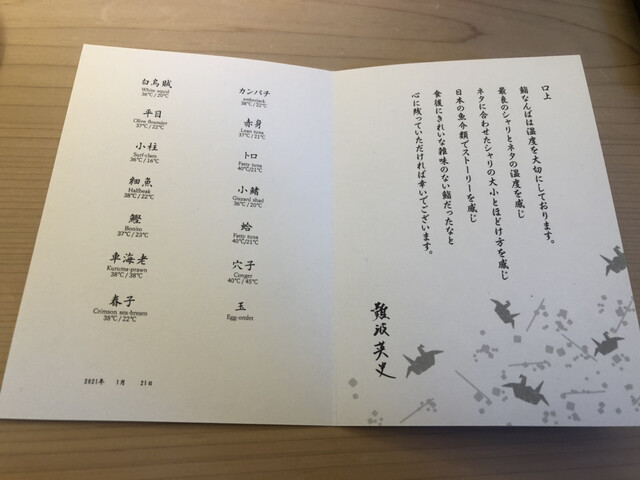 白烏賊
White squid
36℃ / 20℃
平目
Olive flounder
37℃ / 22℃
小柱
Surf-clam
36℃ / 16℃
細魚
Halfbeak
38℃ / 22℃
鰹
Bonito
37℃ / 23℃
車海老
Kuruma-prawn
38℃ / 38℃
春子
Crimson sea-bream
38℃ / 22℃
2021年 1月 21日
カンパチ
amberjack
38℃ / 22℃
赤身
Lean tuna
37℃ / 21℃
トロ
Fatty tuna
40℃/21℃
小鰭
Gizzard shad
36℃ / 20℃
蛤
Fatty tuna
40℃/21℃
穴子
Conger
40℃ / 45℃
玉
Egg-omlet
口上
鮨なんばは温度を大切にしております。
最良のシャリとネタの温度を感じ
ネタに合わせたシャリの大小とほどけ方を感じ
日本の魚介類でストーリーを感じ
食後にきれいな雑味のない鮨だったなと
心に残っていただければ幸いでございます。
難波英史